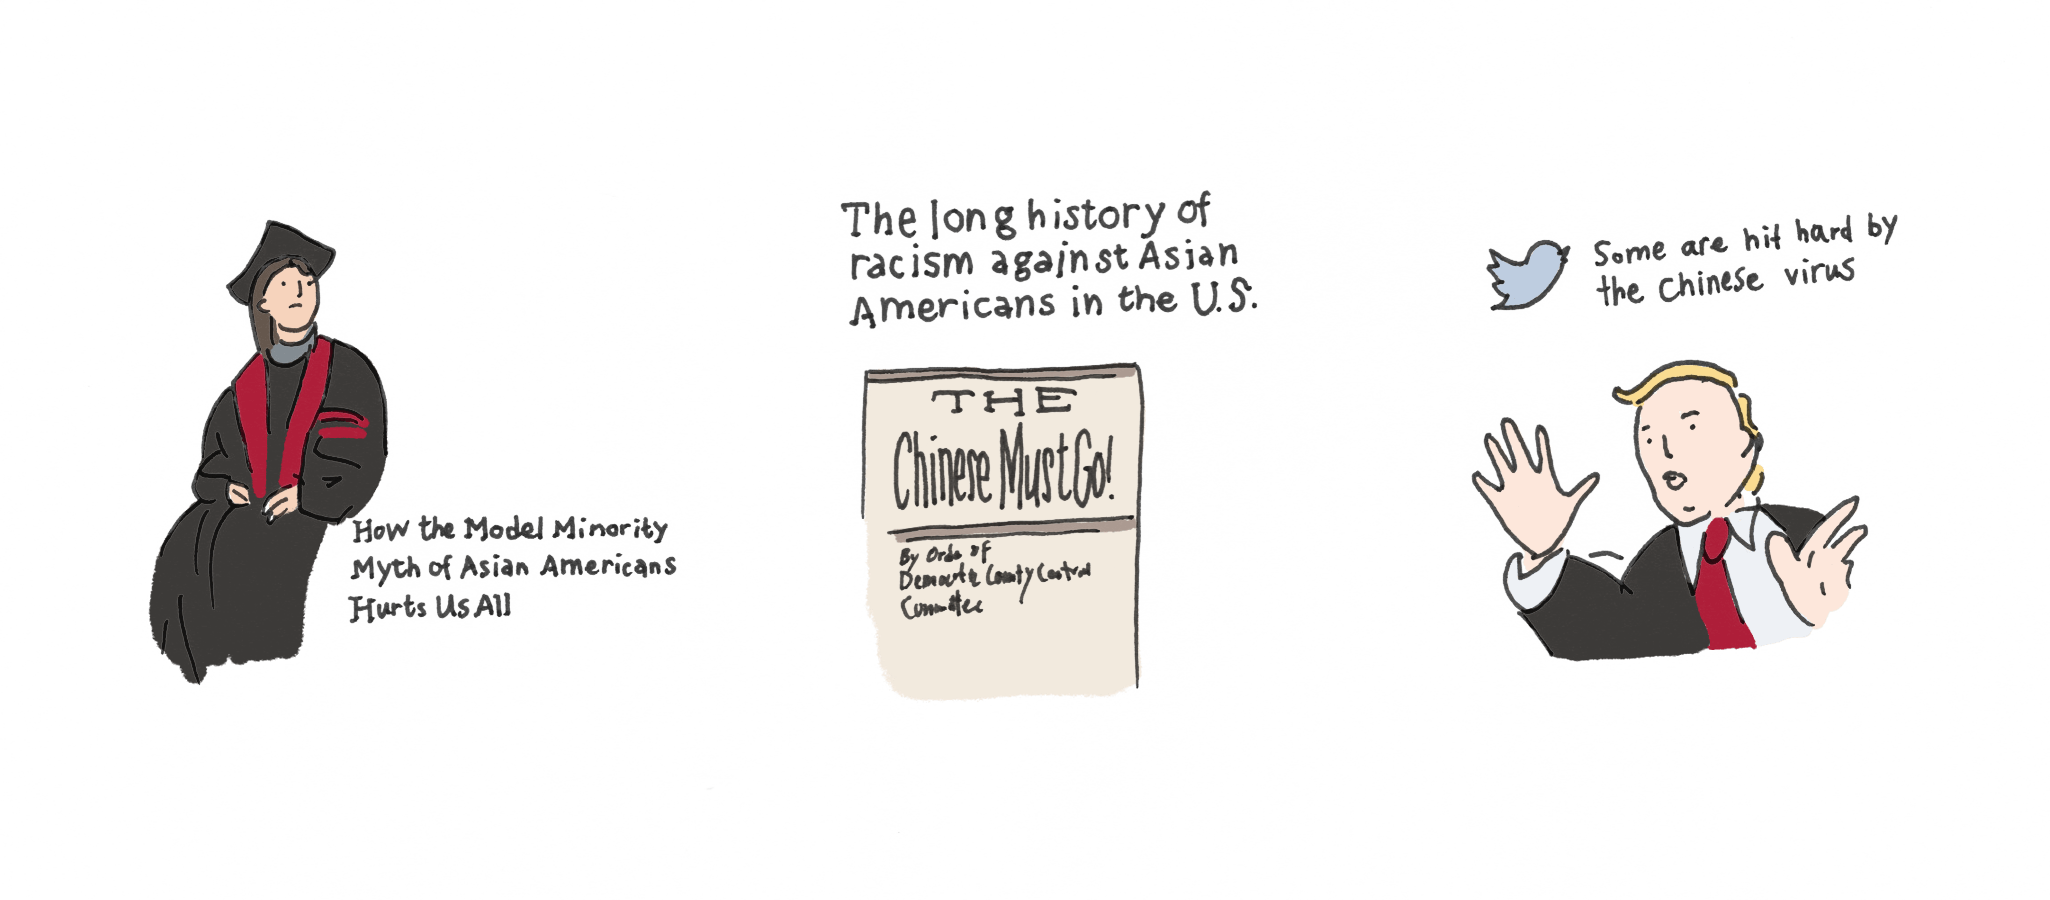 How the Model Minority
Myth of Asian Americans
Hurts Us All
The long history of
racism against Asian
Americans in the U.S.
THE
Chinese Must Go!
By Orde of
County
Committee
Some are hit hard by
the Chinese virus